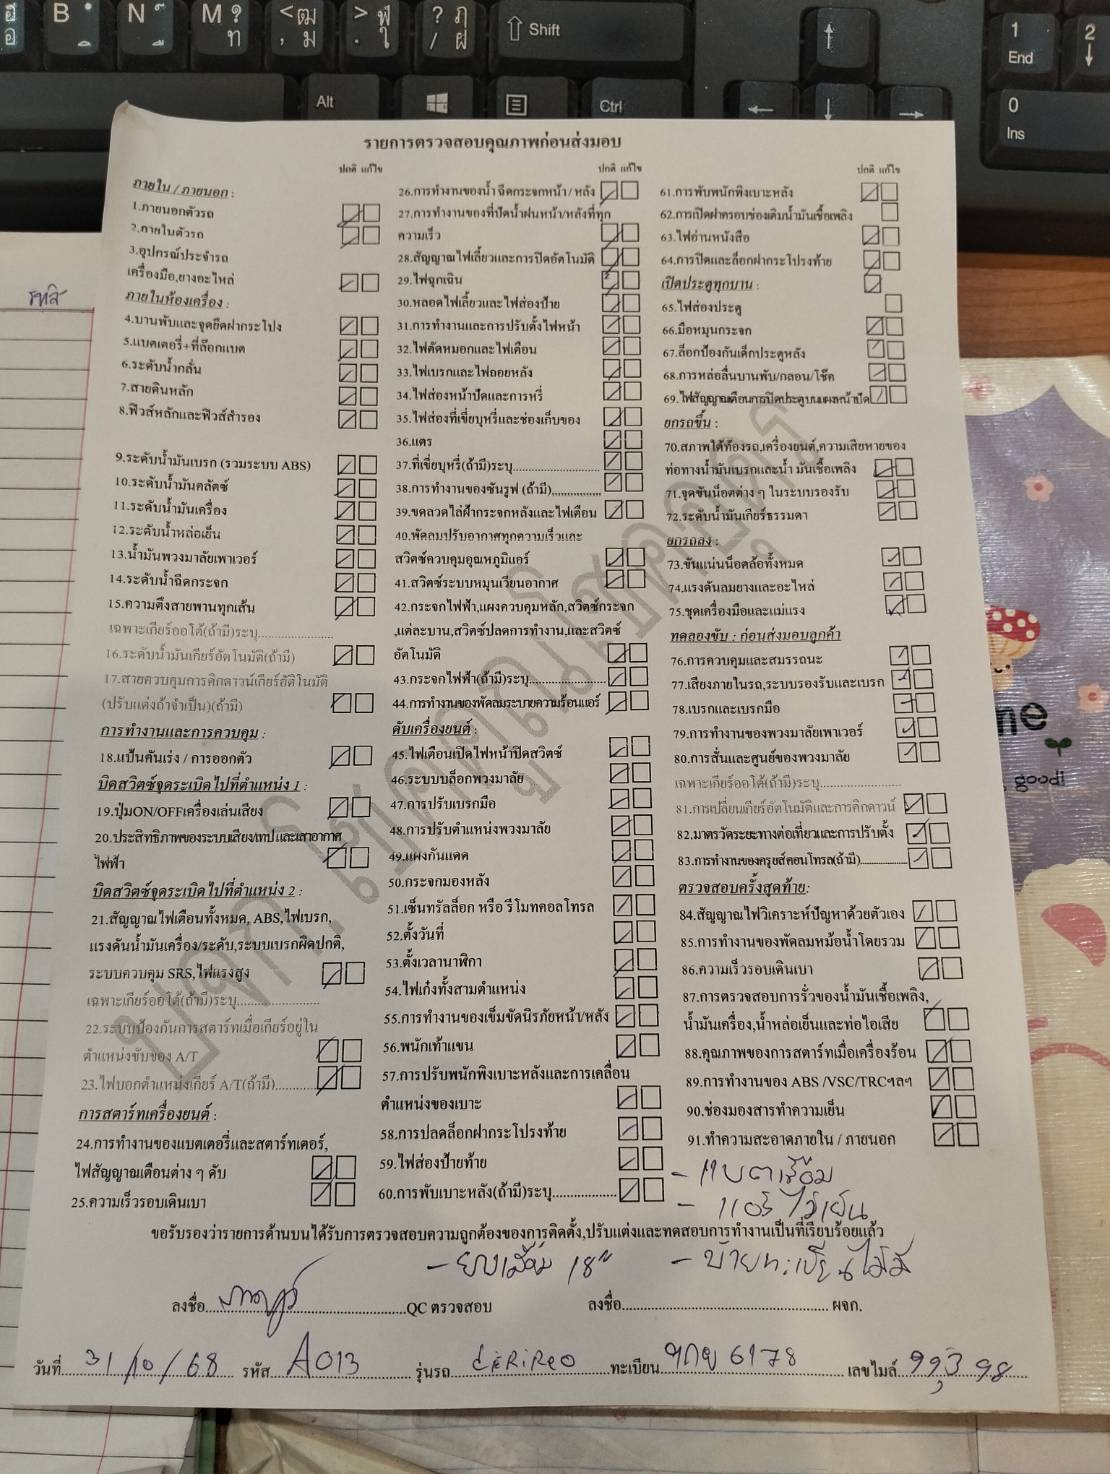 รายการตรวจสอบคุณภาพก่อนส่งมอบ
ปกติ แก้ไข
ภายใน / ภายนอก :
1.ภายนอกตัวรถ
2.ภายในตัวรถ
3.อุปกรณ์ประจำรถ
เครื่องมือ,ยางอะไหล่
ภายในห้องเครื่อง :
4.บานพับและจุดยึดฝากระโปง
5.แบตเตอรี่+ที่ล๊อกแบต
6.ระดับน้ำกลั่น
7.สายดินหลัก
8.ฟิวส์หลักและฟิวส์สำรอง
9.ระดับน้ำมันเบรก (รวมระบบ ABS)
10.ระดับน้ำมันคลัตซ์
11.ระดับน้ำมันเครื่อง
12.ระดับน้ำหล่อเย็น
13.น้ำมันพวงมาลัยเพาเวอร์
14.ระดับน้ำฉีดกระจก
15.ความตึงสายพานทุกเส้น
เฉพาะเกียร์ออโต้(ถ้ามี)ระบุ
16.ระดับน้ำมันเกียร์อัตโนมัติ(ถ้ามี)
17.สายควบคุมการคิกดาวน์เกียร์อัติโนมัติ
(ปรับแต่งถ้าจำเป็น)(ถ้ามี)
การทำงานและการควบคุม :
18.แป้นคันเร่ง / การออกตัว
บิดสวิตซ์จุดระเบิดไปที่ตำแหน่ง 1 :
19.ปุ่มON/OFFเครื่องเล่นเสียง
20.ประสิทธิภาพของระบบเสียง/เทป และเสาอากาศ
ไฟฟ้า
บิดสวิตซ์จุดระเบิดไปที่ตำแหน่ง 2 :
21.สัญญาณไฟเตือนทั้งหมด, ABS,ไฟเบรก,
แรงดันน้ำมันเครื่อง/ระดับ,ระบบเบรกผิดปกติ,
ระบบควบคุม SRS,ไฟแรงสูง
เฉพาะเกียร์ออโต้(ถ้ามี)ระบุ
22.ระบบป้องกันการสตาร์ทเมื่อเกียร์อยู่ใน
ตำแหน่งขับของ A/T
23.ไฟบอกตำแหน่งเกียร์ A/T(ถ้ามี)
การสตาร์ทเครื่องยนต์ :
24.การทำงานของแบตเตอรี่และสตาร์ทเตอร์,
ไฟสัญญาณเตือนต่าง ๆ ดับ
25.ความเร็วรอบเดินเบา
ปกติ แก้ไข
26.การทำงานของน้ำ ฉีดกระจกหน้า / หลัง
27.การทำงานของที่ปัดน้ำฝนหน้า/หลังที่ทุก
ความเร็ว
28.สัญญาณไฟเลี้ยวและการปิดอัตโนมัติ
29.ไฟฉุกเฉิน
30.หลอดไฟเลี้ยวและไฟส่องป้าย
31.การทำงานและการปรับตั้งไฟหน้า
32.ไฟตัดหมอกและไฟเตือน
33.ไฟเบรกและไฟถอยหลัง
34.ไฟส่องหน้าปัดและการหรี่
35.ไฟส่องที่เขี่ยบุหรี่และช่องเก็บของ
36.แตร
37.ที่เขี่ยบุหรี่(ถ้ามี)ระบุ
38.การทำงานของซันรูฟ (ถ้ามี)
39.ขดลวดไล่ฝ้ากระจกหลังและไฟเตือน
40.พัดลมปรับอากาศทุกความเร็วและ
สวิตซ์ควบคุมอุณหภูมิแอร์
41.สวิตซ์ระบบหมุนเวียนอากาศ
42.กระจกไฟฟ้า,แผงควบคุมหลัก,สวิตซ์กระจก
,แต่ละบาน,สวิตซ์ปลดการทำงาน,และสวิตซ์
อัตโนมัติ
43.กระจกไฟฟ้า(ถ้ามี)ระบุ
44.การทำงานของพัดลมระบายความร้อนแอร์
ดับเครื่องยนต์ :
45.ไฟเตือนเปิดไฟหน้าปิดสวิตซ์
46.ระบบบล็อกพวงมาลัย
47.การปรับเบรกมือ
48.การปรับตำแหน่งพวงมาลัย
49.แผงกันแดด
50.กระจกมองหลัง
51.เซ็นทรัลล็อก หรือ รีโมทคอลโทรล
52.ตั้งวันที่
53.ตั้งเวลานาฬิกา
54.ไฟเก๋งทั้งสามตำแหน่ง
55.การทำงานของเข็มขัดนิรภัยหน้า/หลัง
56.พนักเท้าแขน
57.การปรับพนักพิงเบาะหลังและการเคลื่อน
ตำแหน่งของเบาะ
58.การปลดล็อกฝากระโปรงท้าย
59.ไฟส่องป้ายท้าย
60.การพับเบาะหลัง(ถ้ามี)ระบุ
ปกติ แก้ไข
61.การพับพนักพิงเบาะหลัง
62.การเปิดฝาครอบช่องเติมน้ำมันเชื้อเพลิง
63.ไฟอ่านหนังสือ
64.การปิดและล็อกฝากระโปรงท้าย
เปิดประตูทุกบาน :
65.ไฟส่องประตู
66.มือหมุนกระจก
67.ล็อกป้องกันเด็กประตูหลัง
68.การหล่อลื่นบานพับ/กลอน/โช๊ค
69.ไฟสัญญาณเตือนการปิดประตูบนแผงหน้าปัด
ยกรถขึ้น :
70.สภาพใต้ท้องรถ,เครื่องยนต์,ความเสียหายของ
ท่อทางน้ำมันเบรกและน้ำ มันเชื้อเพลิง
71.จุดขันน็อตต่าง ๆ ในระบบรองรับ
72.ระดับน้ำมันเกียร์ธรรมดา
ยกรถลง :
73.ขันแน่นน็อตล้อทั้งหมด
74.แรงดันลมยางและอะไหล่
75.ชุดเครื่องมือและแม่แรง
ทดลองขับ : ก่อนส่งมอบลูกค้า
76.การควบคุมและสมรรถนะ
77.เสียงภายในรถ,ระบบรองรับและเบรก
78.เบรกและเบรกมือ
79.การทำงานของพวงมาลัยเพาเวอร์
80.การสั่นและศูนย์ของพวงมาลัย
เฉพาะเกียร์ออโต้(ถ้ามี)ระบุ
81.การเปลี่ยนเกียร์อัตโนมัติและการคิกดาวน์
82.มาตรวัดระยะทางต่อเที่ยวและการปรับตั้ง
83.การทำงานของครุยส์คอนโทรล(ถ้ามี)
ตรวจสอบครั้งสุดท้าย:
84.สัญญาณไฟวิเคราะห์ปัญหาด้วยตัวเอง
85.การทำงานของพัดลมหม้อน้ำโดยรวม
86.ความเร็วรอบเดินเบา
87.การตรวจสอบการรั่วของน้ำมันเชื้อเพลิง,
น้ำมันเครื่อง,น้ำหล่อเย็นและท่อไอเสีย
88.คุณภาพของการสตาร์ทเมื่อเครื่องร้อน
89.การทำงานของ ABS /VSC/TRCฯลฯ
90.ช่องมองสารทำความเย็น
91.ทำความสะอาดภายใน / ภายนอก
- แบตเสื่อม
- แอร์ ไม่เย็น
ขอรับรองว่ารายการด้านบนได้รับการตรวจสอบความถูกต้องของการติดตั้ง,ปรับแต่งและทดสอบการทำงานเป็นที่เรียบร้อยแล้ว
- ยางเสื่อม 18" - ป้ายทะเบียนไม่มี
ลงชื่อ QC ตรวจสอบ ลงชื่อ ผจก.
วันที่ 31/10/68 รหัส A013 รุ่นรถ ทะเบียน 6178 เลขไมล์ 99,398
B
N
M
Shift
Alt
Ctrl
1
End
2
0
Ins
me
goodi